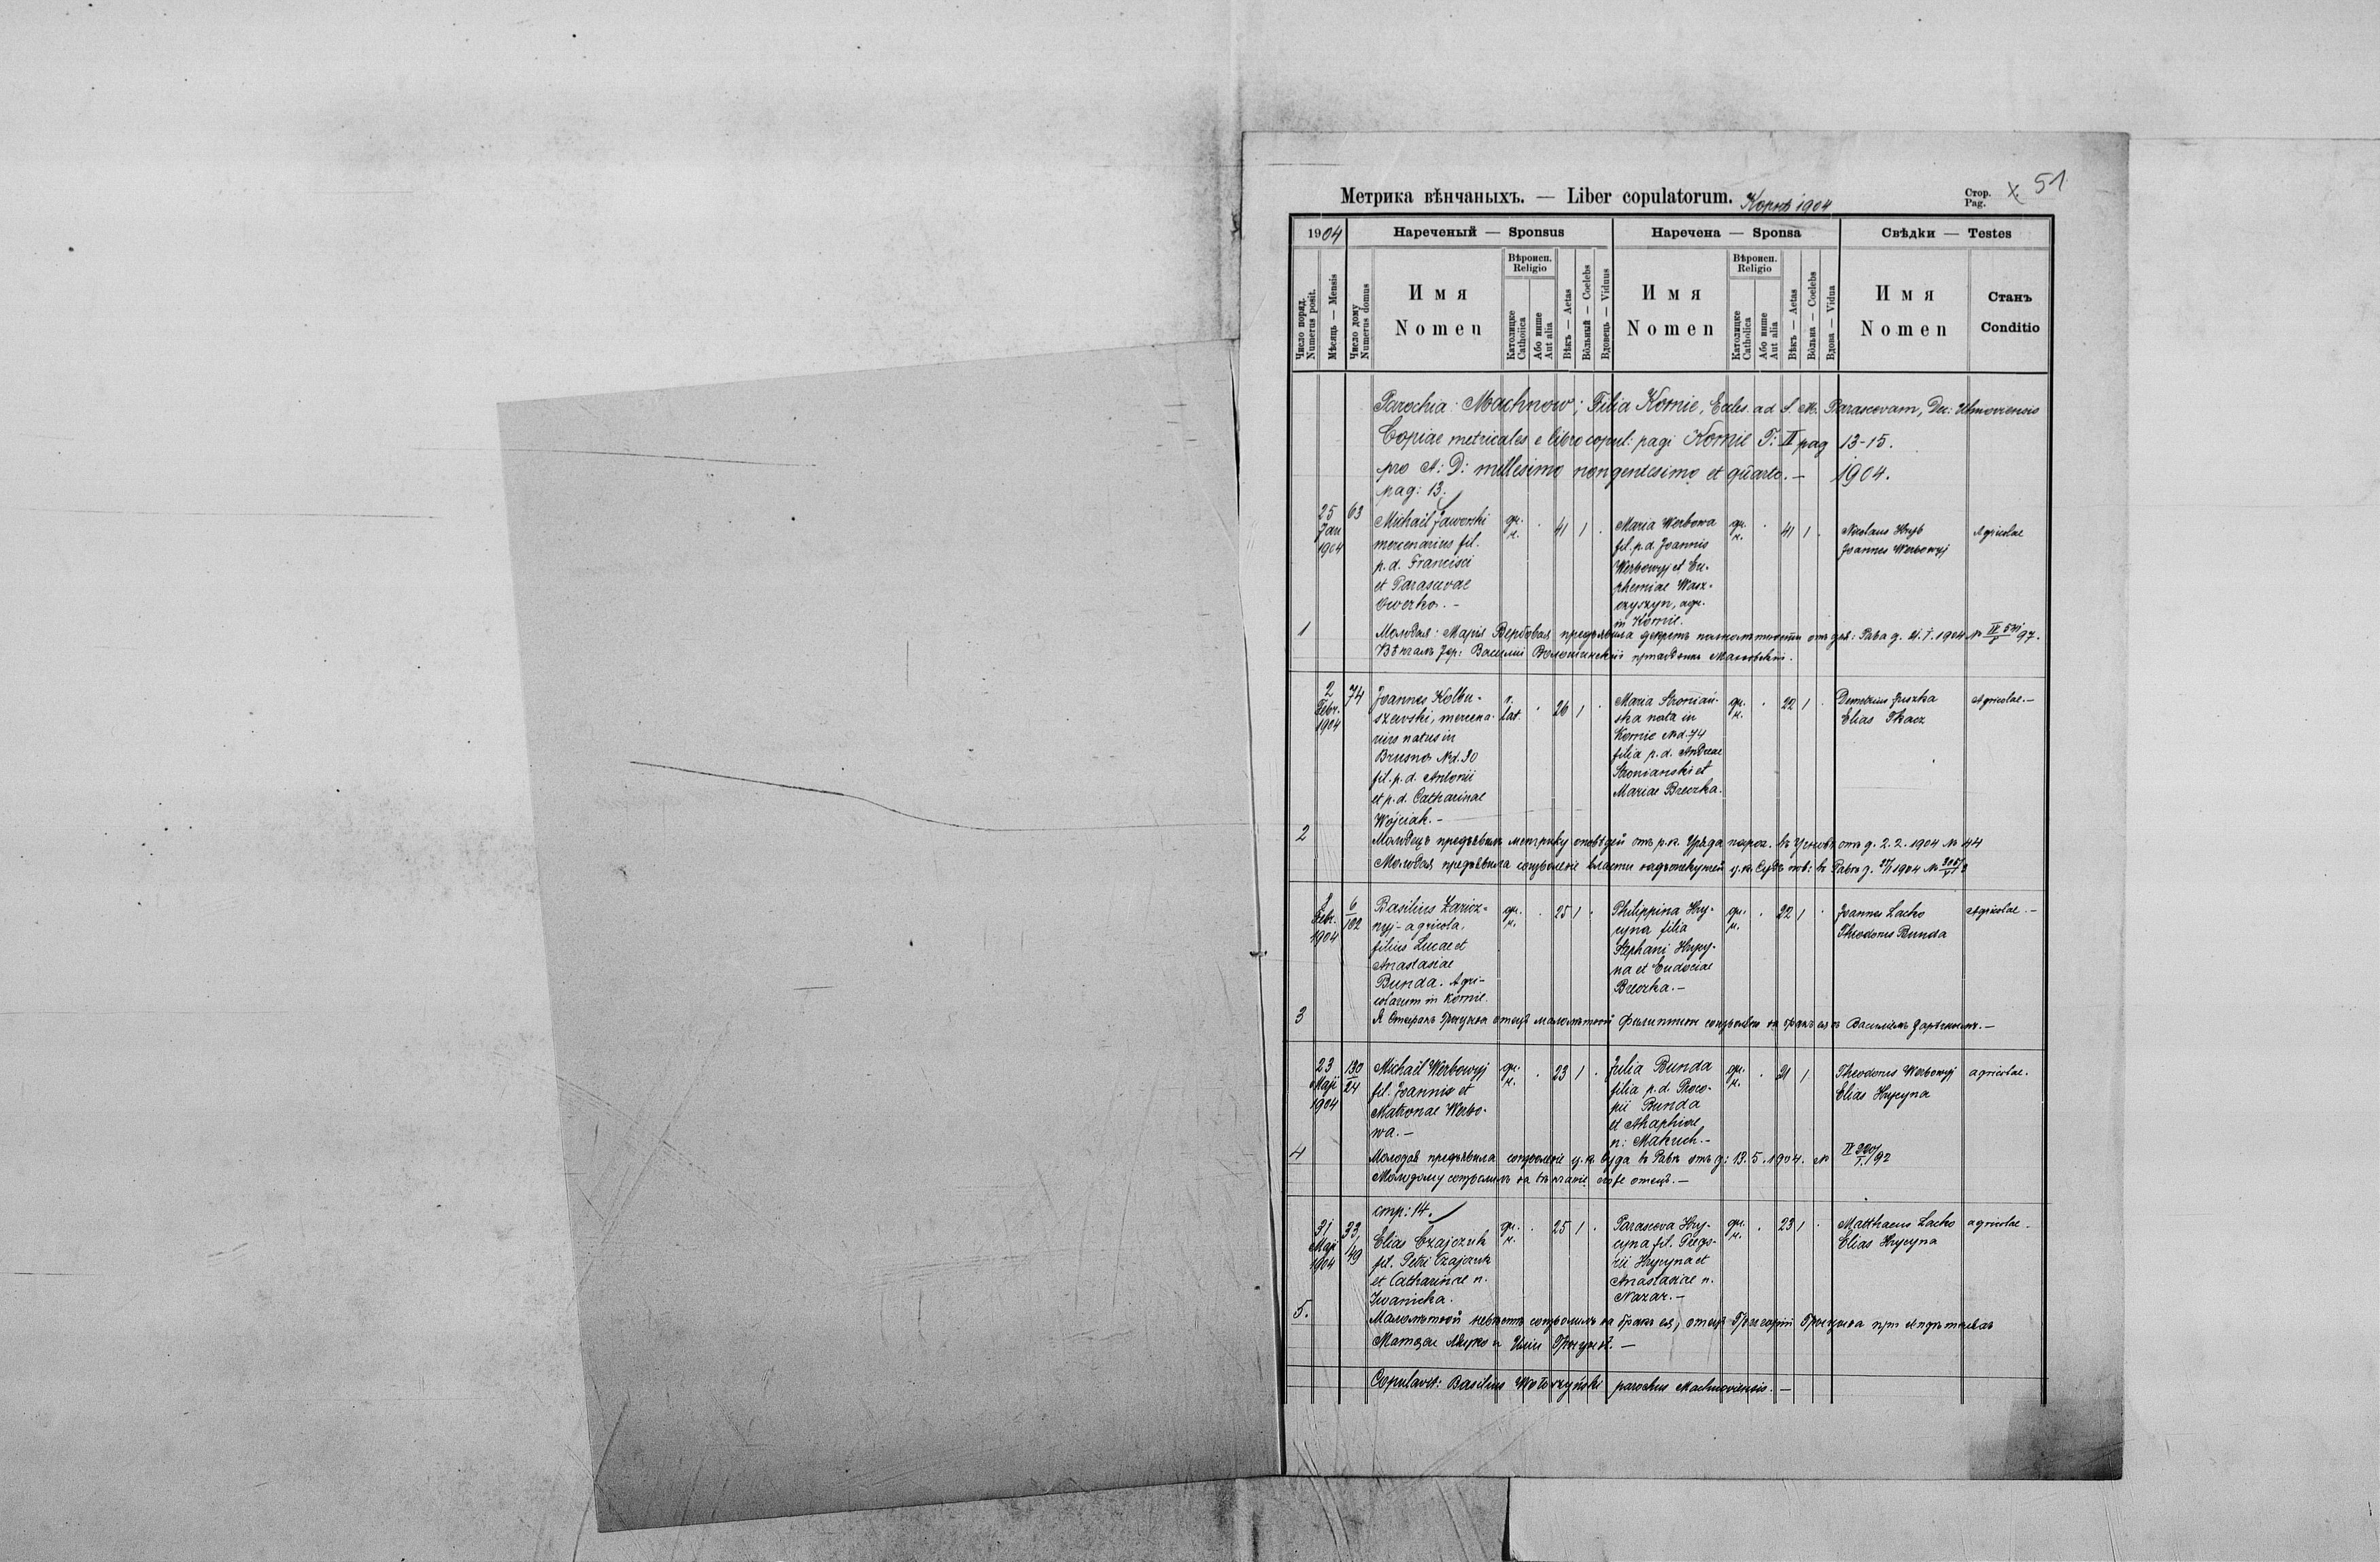 Метрика вѣнчаныхъ. — Liber copulatorum. Корнѣ 1904
Стор. Pag. 51
1904
Нареченый — Sponsus
Наречена — Sponsa
Свѣдки — Testes
Число поряд. Numerus posit.
Мѣсяць — Mensis
Число дому Numerus domus
Имя Nomen
Вѣроисп. Religio
Католицке Catholica
Або инше Aut alia
Вѣкъ — Aetas
Вôльный — Coelebs
Вдовець — Viduus
Имя Nomen
Вѣроисп. Religio
Католицке Catholica
Або инше Aut alia
Вѣкъ — Aetas
Вôльна — Coelebs
Вдова — Vidua
Имя Nomen
Станъ Conditio
Parochia: Machnow; Filia Kornie, Eccles. ad S. M. Parascevam, Dec: Uhnoviensis
Copiae metricales e libro copul: pagi Kornie T: II pag 13-15.
pro A: D: millesimo nongentesimo et quarto. — 1904.
pag: 13.
1
25 Jan 1904
63
Michaël Jaworski
mercenarius fil.
p. d. Francisci
et Parascevae
gr. 41 1
Maria Werbowa
fil. p. d. Joannis
Werbowyj et Eu-
phemiae Wasz-
czyszyn, agr.
in Kornie.
gr. 41 1
Nicolaus Hryb
Joannes Werbowyj
Agricolae
Молодая: Марія Вербовая предъявила декретъ 21. I. 1904 №
Вѣнчалъ Іер: Василій Волошинскій
2
2 Febr. 1904
74
Joannes Kolbu-
szewski, mercena-
rius natus in
Brusno Nd. 30
fil. p. d. Antonii
et p. d. Catharinae
Wojciak. —
r. lat. 26 1
Maria Stroniań-
ska nata in
Kornie Nd. 74
filia p. d. Andreae
Stronianski et
Mariae Breczka.
gr. 22 1
Demetrius Juszka
Elias Tkacz
Agricolae. —
Молодецъ предъявилъ метрику оповѣдей отъ р.к. Уряда парох. въ Угновѣ отъ д. 2. 2. 1904 № 44
Молодая предъявила соизволеніе власти
3
8 Febr. 1904
6/102
Basilius Zaricz-
nyj - agricola,
filius Lucae et
Anastasiae
Bunda. Agri-
colarum in Kornie.
gr. 25 1
Philippina Hry-
cyna filia
Stephani Hrycy-
na et Eudociae
Breczka. —
gr. 22 1
Joannes Lacko
Theodorus Bunda
Agricolae. —
Я Стефанъ Грицина отецъ малолѣтной Филиппины соизволяю на бракъ ея съ Василіемъ Зарѣчнымъ. —
4
23 Maji 1904
130/24
Michaël Werbowyj
fil. Joannis et
Matronae Werbo-
wa. —
gr. 23 1
Julia Bunda
filia p. d. Proco-
pii Bunda
et Ahaphiae
n: Makuch. —
gr. 21 1
Theodorus Werbowyj
Elias Hrycyna
agricolae.
Молодая предъявила соизволеніе ц. к. Суда въ Равѣ отъ д: 13. 5. 1904. №
Молодому соизволилъ на вѣнчаніе отецъ. —
стр: 14.
5.
31 Maji 1904
33/149
Elias Czajczuk
fil. Petri Czajczuk
et Catharinae n.
Iwanicka.
gr. 25 1
Parasceva Hry-
cyna fil. Grego-
rii Hrycyna et
Anastasiae n.
Nazar. —
gr. 23 1
Matthaeus Lacko
Elias Hrycyna
agricolae.
Малолѣтной невѣстѣ соизволилъ на бракъ ея, отецъ Григорій Грицина при
Матѳеи Ляцко и Иліи Грицинѣ. —
Copulavit: Basilius Wołoszyński parochus Machnoviensis. —